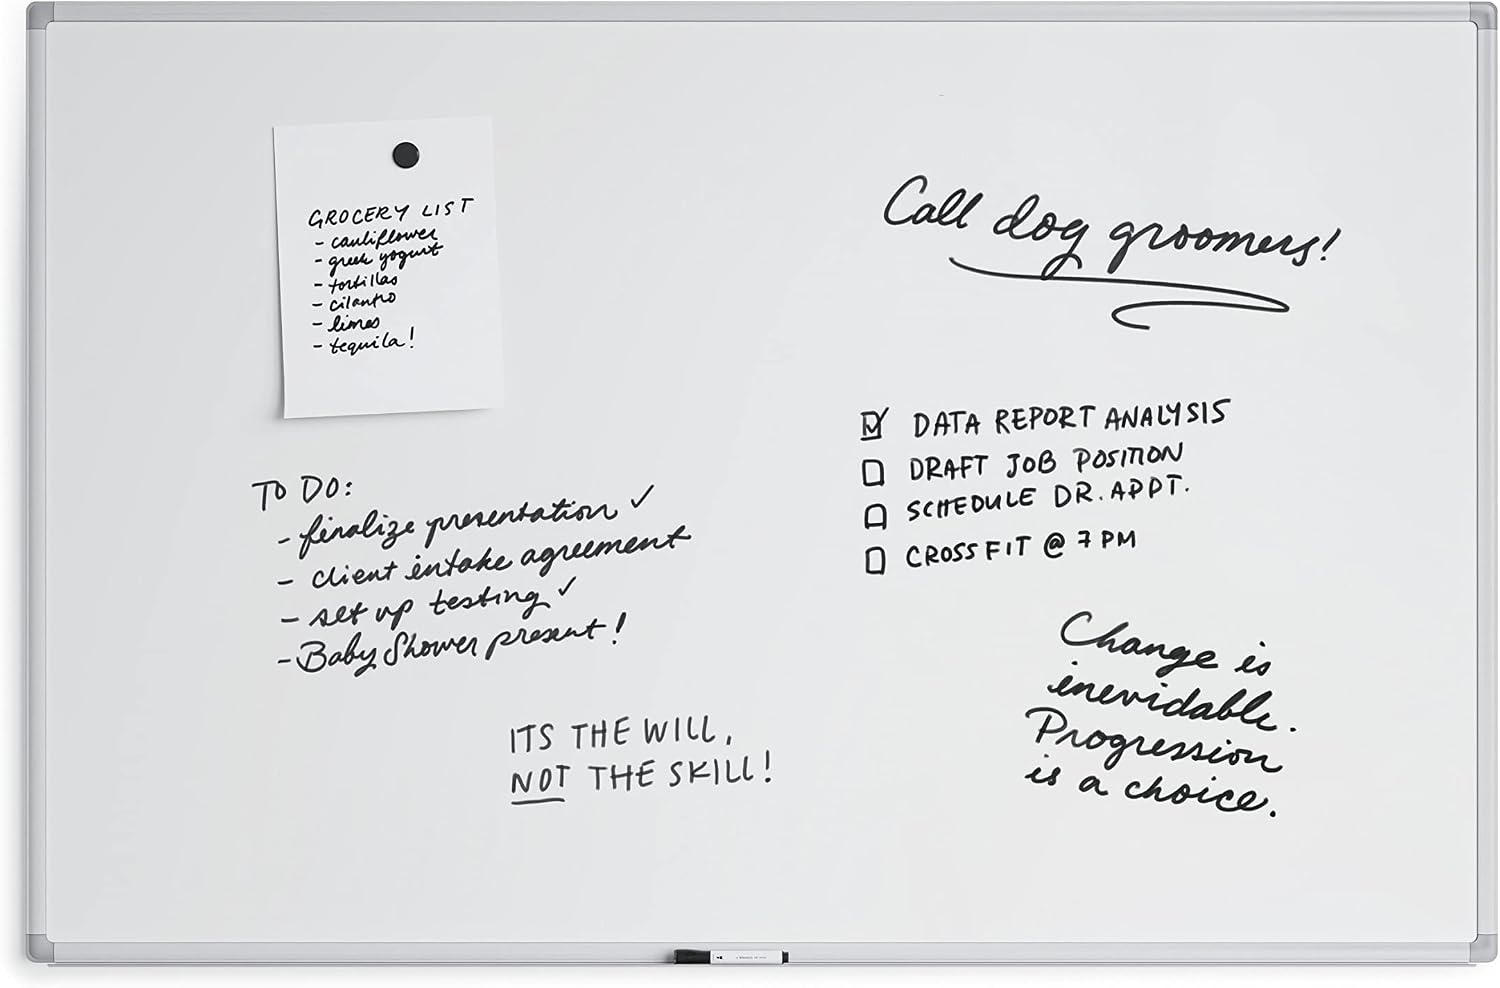 GROCERY LIST
- cauliflower
- greek yogurt
- tortillas
- cilantro
- limes
- tequila!
Call dog groomers!
DATA REPORT ANALYSIS
DRAFT JOB POSITION
SCHEDULE DR. APPT.
CROSSFIT @ 7 PM
TO DO:
- finalize presentation ✓
- client intake agreement
- set up testing ✓
- Baby Shower present!
ITS THE WILL,
NOT THE SKILL!
Change is
inevidable.
Progression
is a choice.